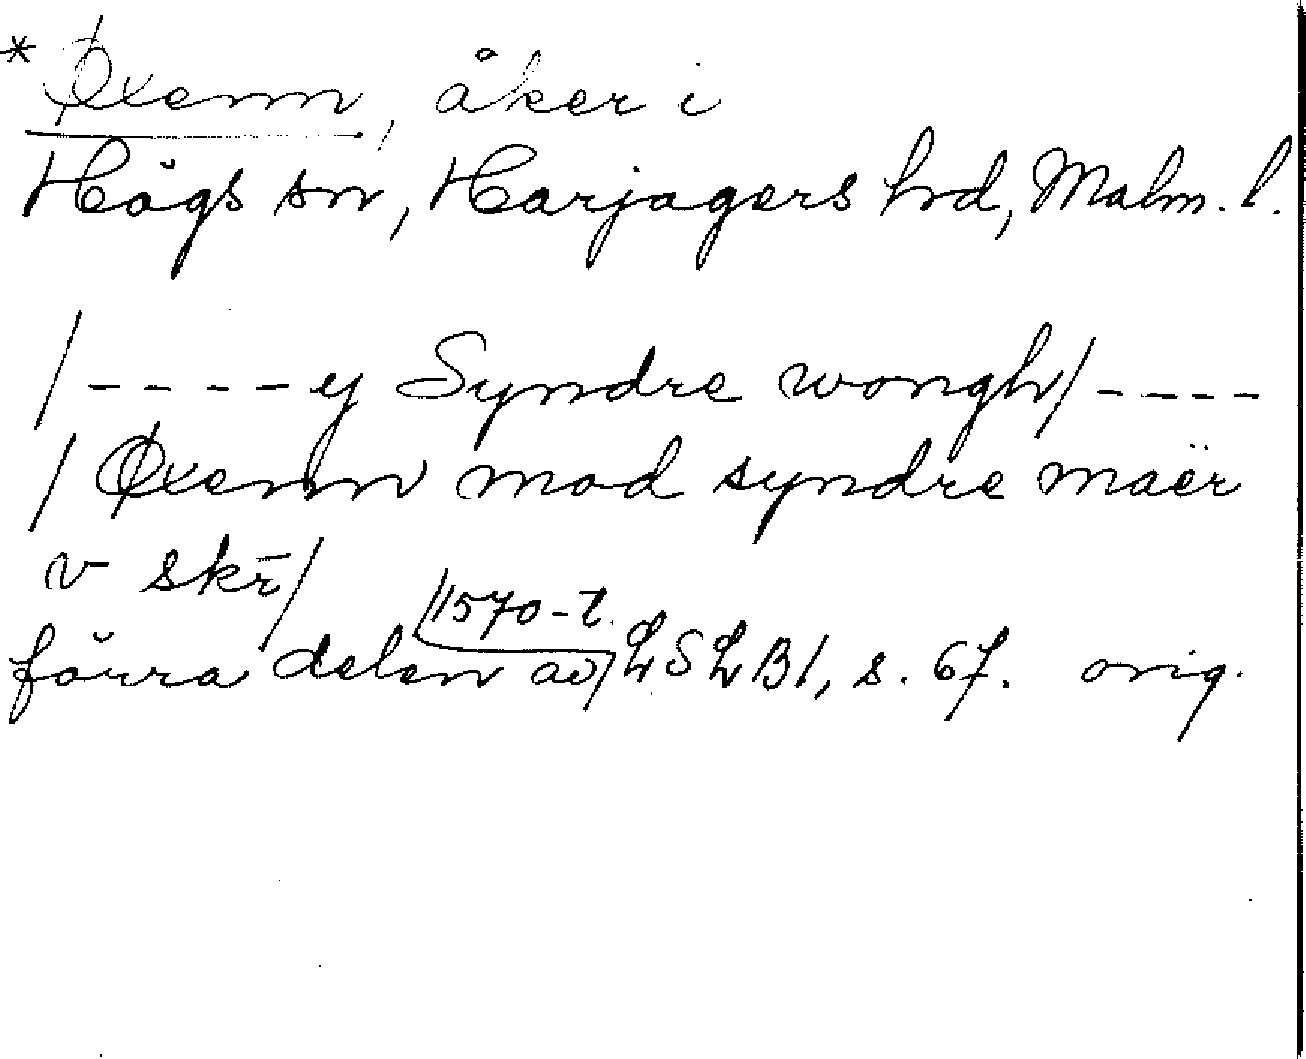 * Øxenn, åker i
Högs sn, Harjagers hrd, Malm. l.
/----ej Syndre wongh/----
/Øxenn mod syndre maër
v skr̄/
förra delen av 1570-t. LSLB1, s. 67. orig.